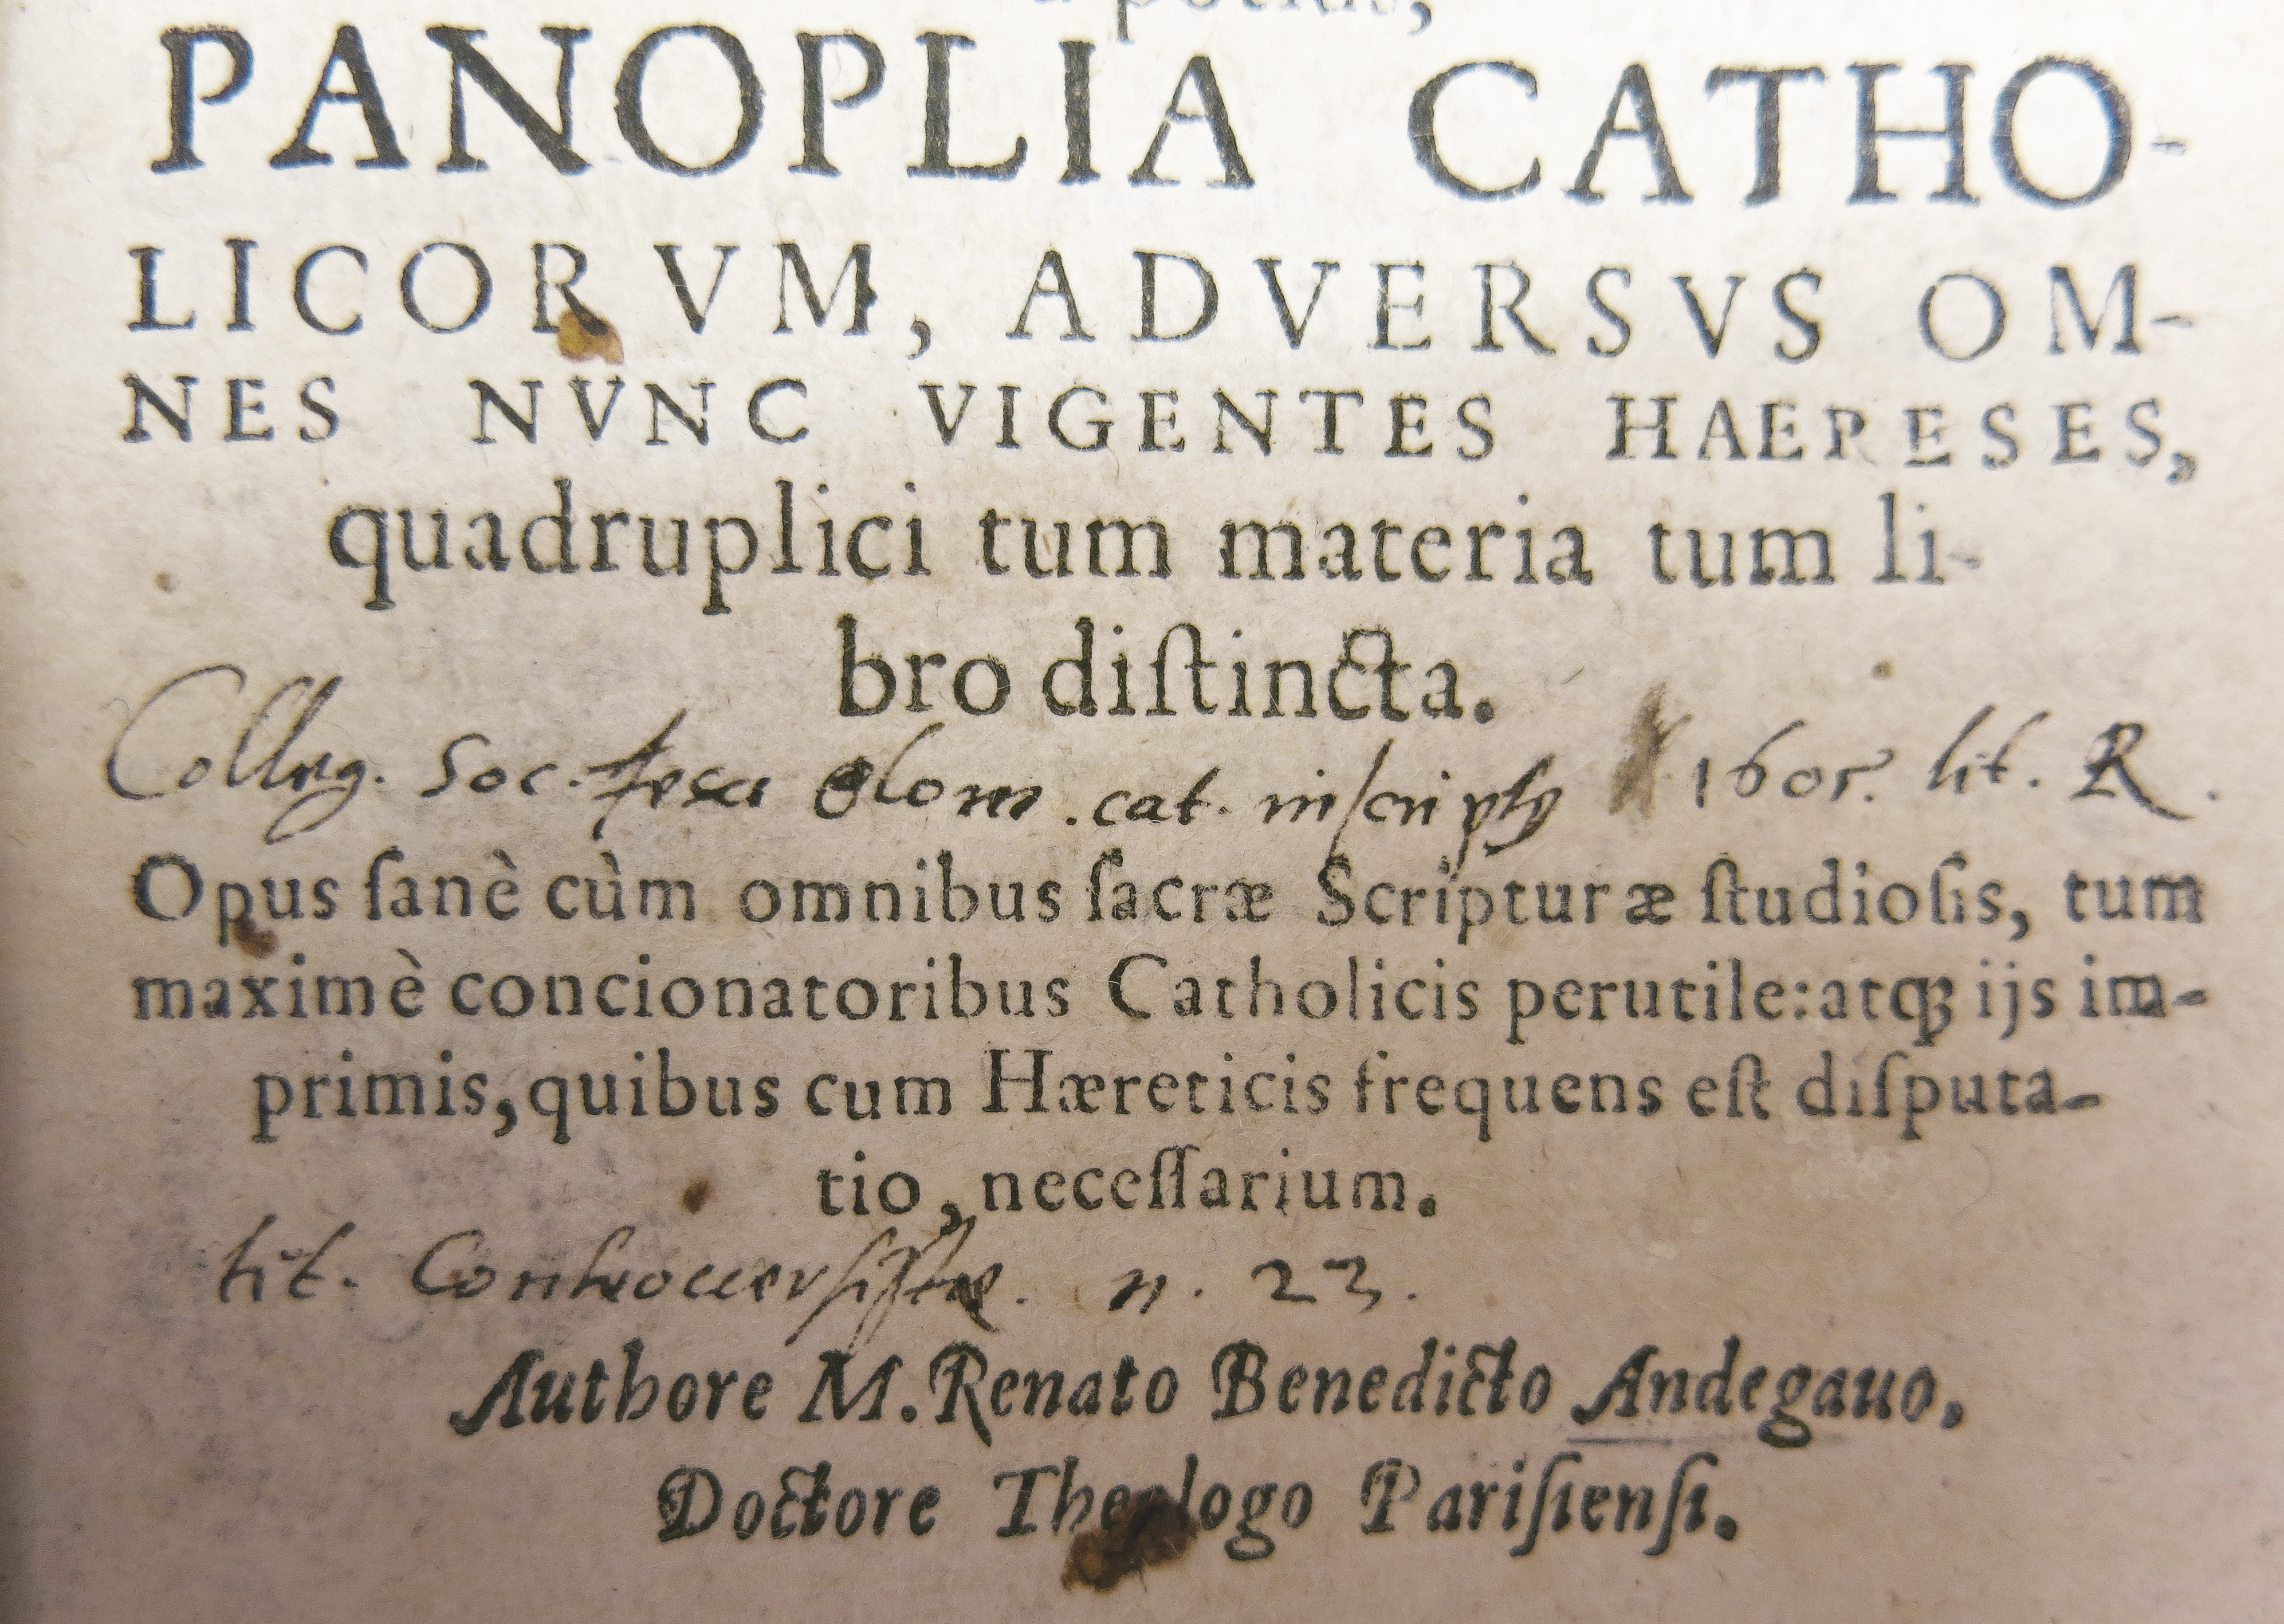 PANOPLIA CATHO-
LICORVM, ADVERSVS OM-
NES NVNC VIGENTES HAERESES,
quadruplici tum materia tum li-
bro diſtincta.
Colleg. Soc. Jesu Olom. cat. inſcriptꝰ 1605. lit. R.
Opus ſanè cùm omnibus ſacræ Scripturæ ſtudioſis, tum
maximè concionatoribus Catholicis perutile: atqꝫ ijs im-
primis, quibus cum Hæreticis frequens eſt diſputa-
tio, neceſſarium.
tit. Controuerſiſtæ. n. 23.
Authore M. Renato Benedicto Andegauo,
Doctore Theologo Pariſienſi.